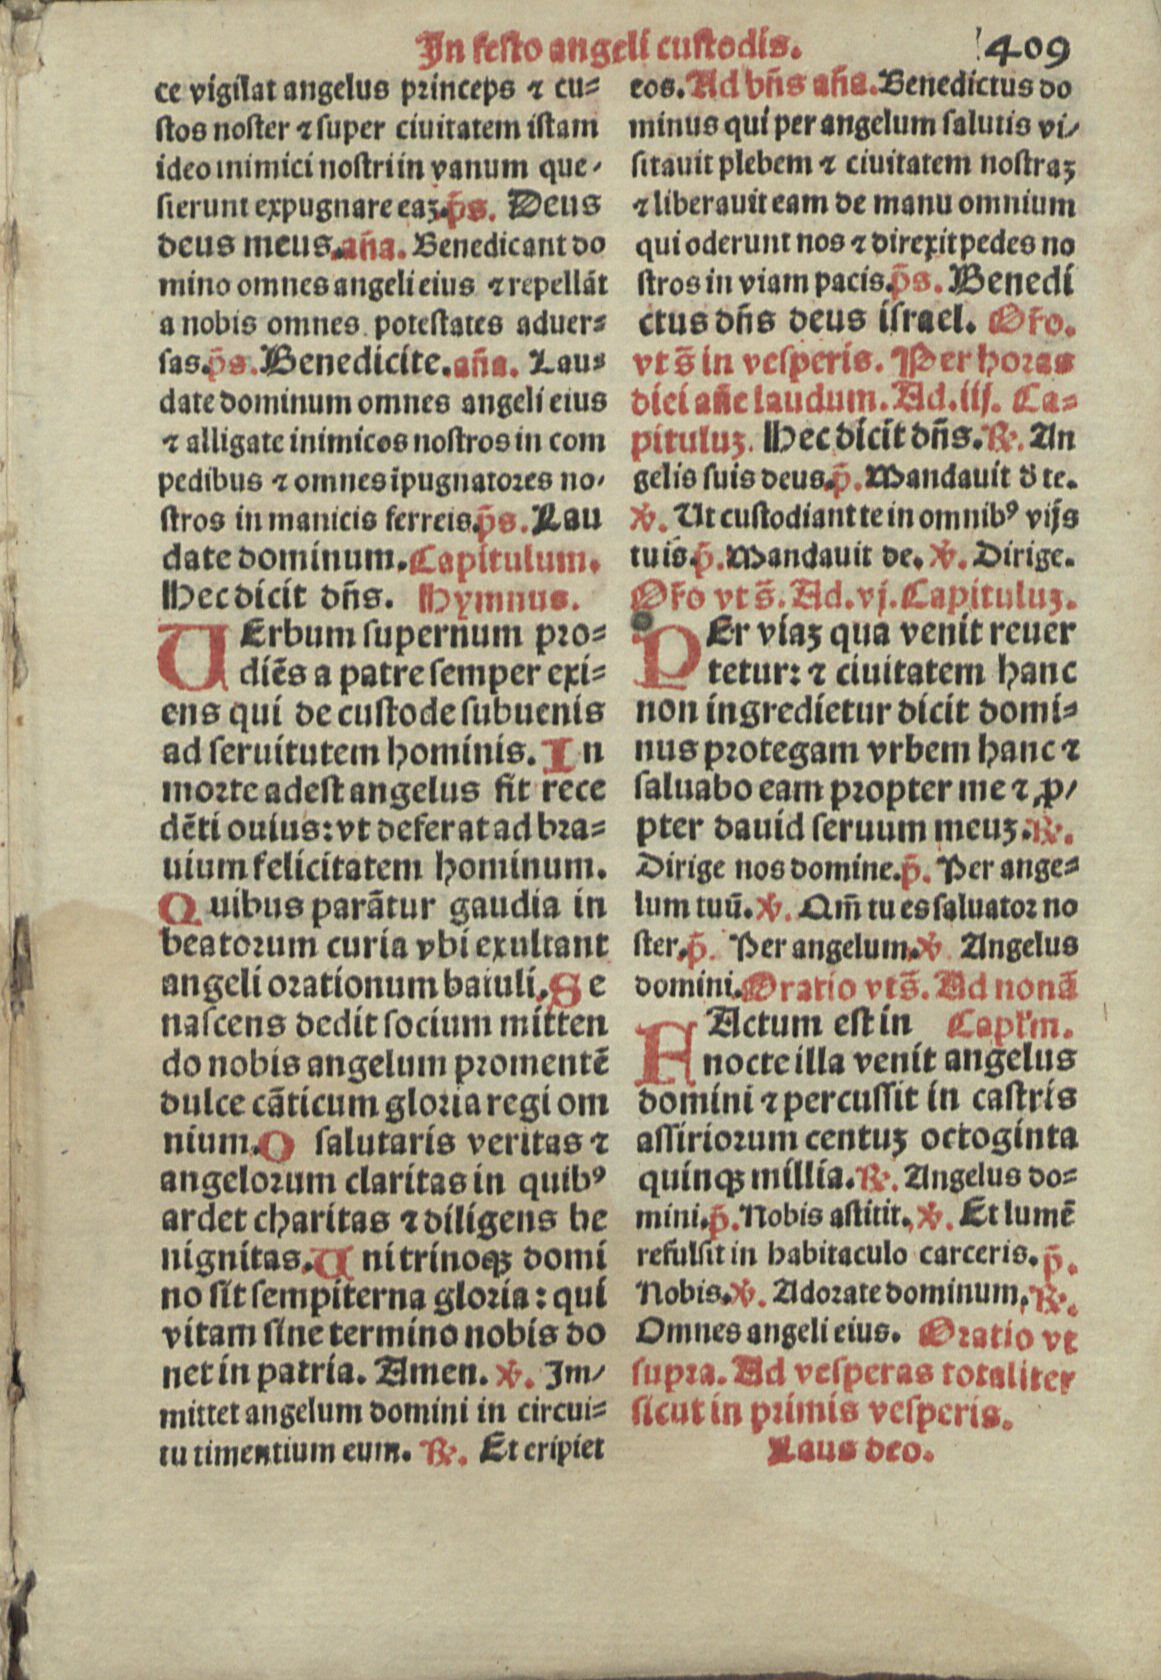 In festo angeli custodis. 409
ce vigilat angelus princeps ⁊ cu⸗
stos noster ⁊ super ciuitatem istam
ideo inimici nostri in vanum que⸗
sierunt expugnare eaꝫ. p̄s. Deus
deus meus. aña. Benedicant do
mino omnes angeli eius ⁊ repellāt
a nobis omnes potestates aduer⸗
sas. p̄s. Benedicite. aña. Lau⸗
date dominum omnes angeli eius
⁊ alligate inimicos nostros in com
pedibus ⁊ omnes īpugnatores no⸗
stros in manicis ferreis. p̄s. Lau
date dominum. Capitulum.
Hec dicit dn̄s. Hymnus.
UErbum supernum pro⸗
diēs a patre semper exi⸗
ens qui de custode subuenis
ad seruitutem hominis. In
morte adest angelus fit rece
dēti ouius: vt deferat ad bra⸗
uium felicitatem hominum.
Quibus parātur gaudia in
beatorum curia vbi exultant
angeli orationum baiuli. Se
nascens dedit socium mitten
do nobis angelum promentē
dulce cāticum gloria regi om
nium. O salutaris veritas ⁊
angelorum claritas in quibꝰ
ardet charitas ⁊ diligens be
nignitas. Uni trinoqꝫ domi
no sit sempiterna gloria: qui
vitam sine termino nobis do
net in patria. Amen. ℣. Im⸗
mittet angelum domini in circui⸗
tu timentium eum. ℟. Et eripiet
eos. Ad bn̄s aña. Benedictus do
minus qui per angelum salutis vi⸗
sitauit plebem ⁊ ciuitatem nostraꝫ
⁊ liberauit eam de manu omnium
qui oderunt nos ⁊ direxit pedes no
stros in viam pacis. p̄s. Benedi
ctus dn̄s deus israel. Oro.
vt s̄ in vesperis. Per horas
diei añe laudum. Ad. iij. Ca⸗
pituluꝫ. Hec dicit dn̄s. ℟. An
gelis suis deus. p̄. Mandauit d̄ te.
℣. Ut custodiant te in omnibꝰ vijs
tuis. p̄. Mandauit de. ℣. Dirige.
Oro vt s̄. Ad. vj. Capituluꝫ.
PEr viaꝫ qua venit reuer
tetur: ⁊ ciuitatem hanc
non ingredietur dicit domi⸗
nus protegam vrbem hanc ⁊
saluabo eam propter me ⁊ ꝓ⸗
pter dauid seruum meuꝫ. ℟.
Dirige nos domine. p̄. Per ange⸗
lum tuū. ℣. Qm̄ tu es saluator no
ster. p̄. Per angelum. ℣ Angelus
domini. Oratio vt s̄. Ad nonā
FActum est in Capl'm.
nocte illa venit angelus
domini ⁊ percussit in castris
assiriorum centuꝫ octoginta
quinqꝫ millia. ℟. Angelus do⸗
mini. p̄. Nobis astitit. ℣. Et lumē
refulsit in habitaculo carceris. p̄.
Nobis. ℣. Adorate dominum. ℟.
Omnes angeli eius. Oratio vt
supra. Ad vesperas totaliter
sicut in primis vesperis.
Laus deo.